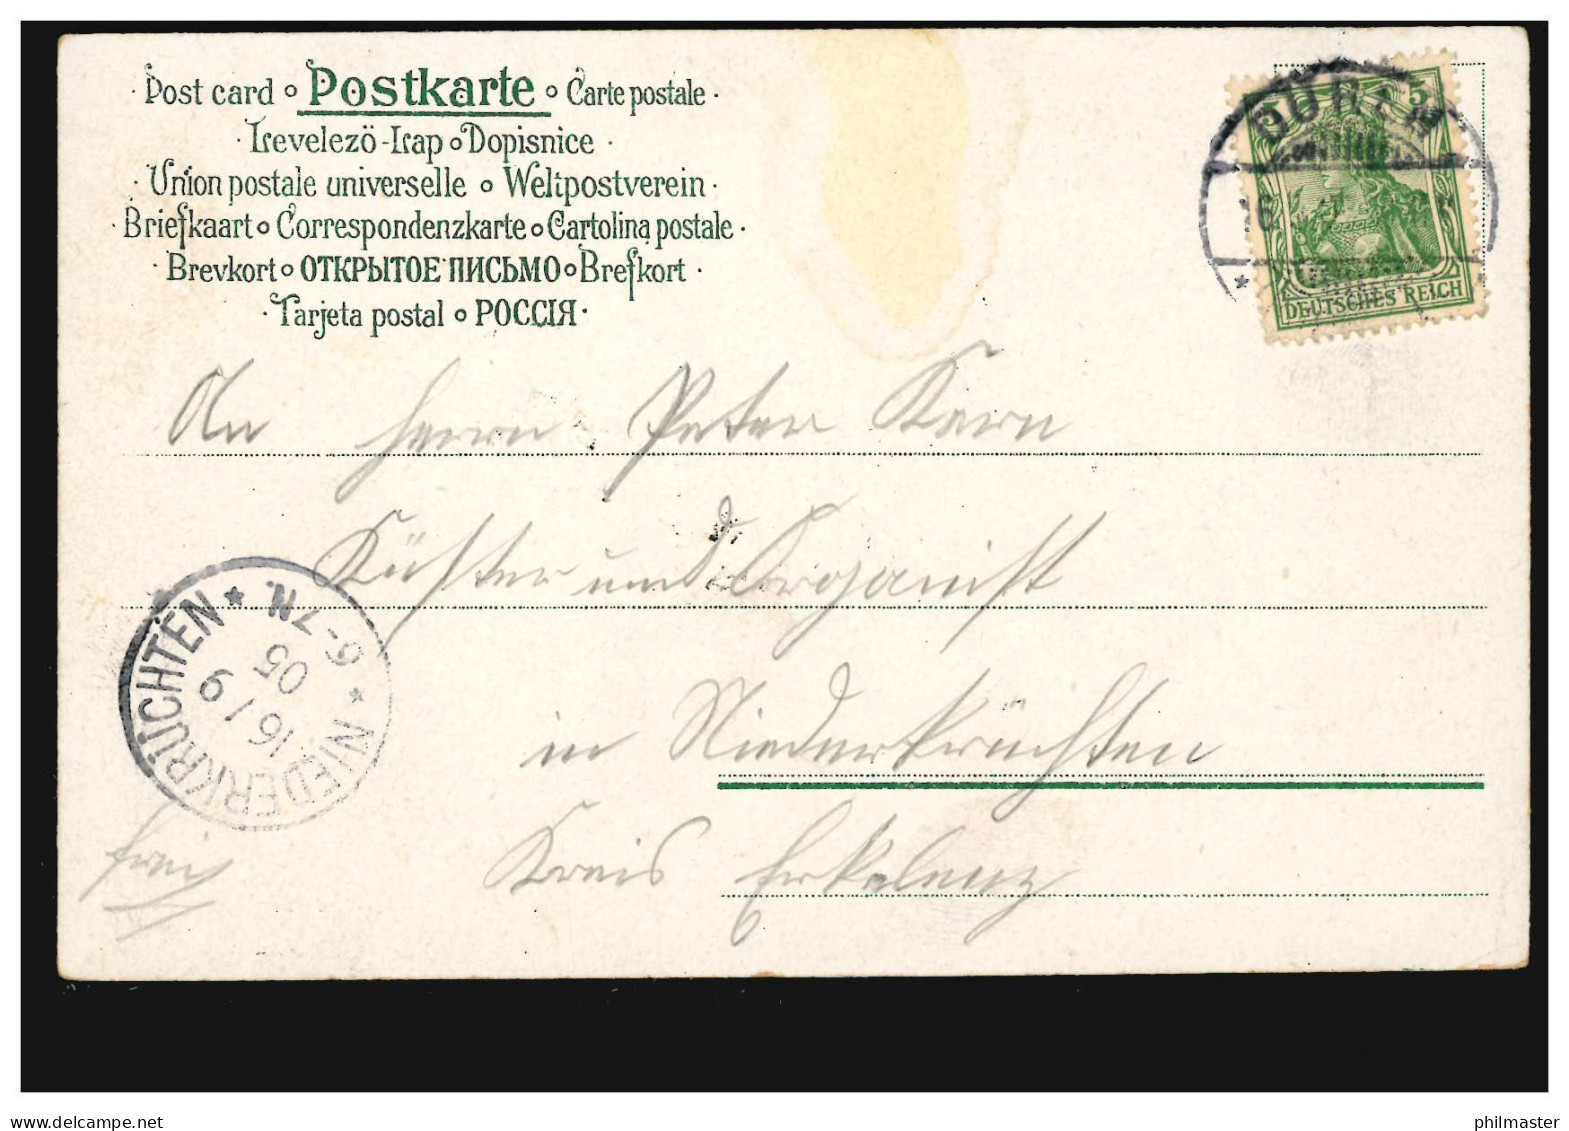 · Post card o Postkarte o Carte postale ·
· Levelezö-Lap o Dopisnice ·
· Union postale universelle o Weltpostverein ·
· Briefkaart o Correspondenzkarte o Cartolina postale ·
· Brevkort o ОТКРЫТОЕ ПИСЬМО o Brefkort ·
· Tarjeta postal o РОССІЯ ·
5 5
DEUTSCHES REICH
DÜREN
An Herrn Peter Kern
Küster und Organist
in Niederkrüchten
Kreis Erkelenz
frei
* NIEDERKRÜCHTEN *
16/9
05
6-7N.
delcampe.net
philmaster